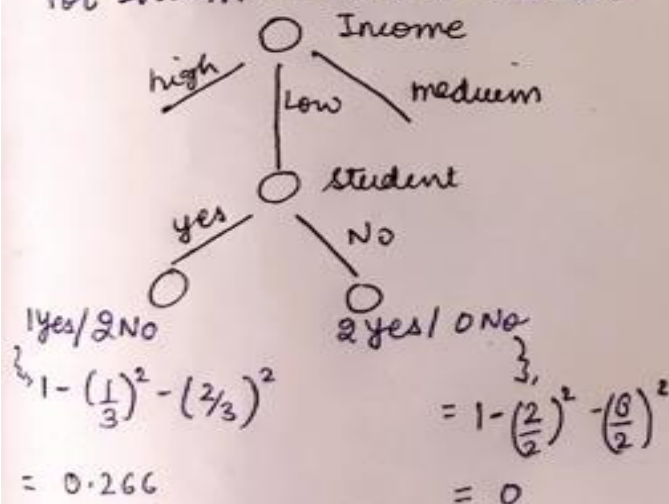 Income
high
Low
medium
Student
yes
No
1Yes/2No
2 yes/ 0 No
1-(1/3)²-(2/3)²
= 1-(2/2)²-(0/2)²
= 0.266
= 0